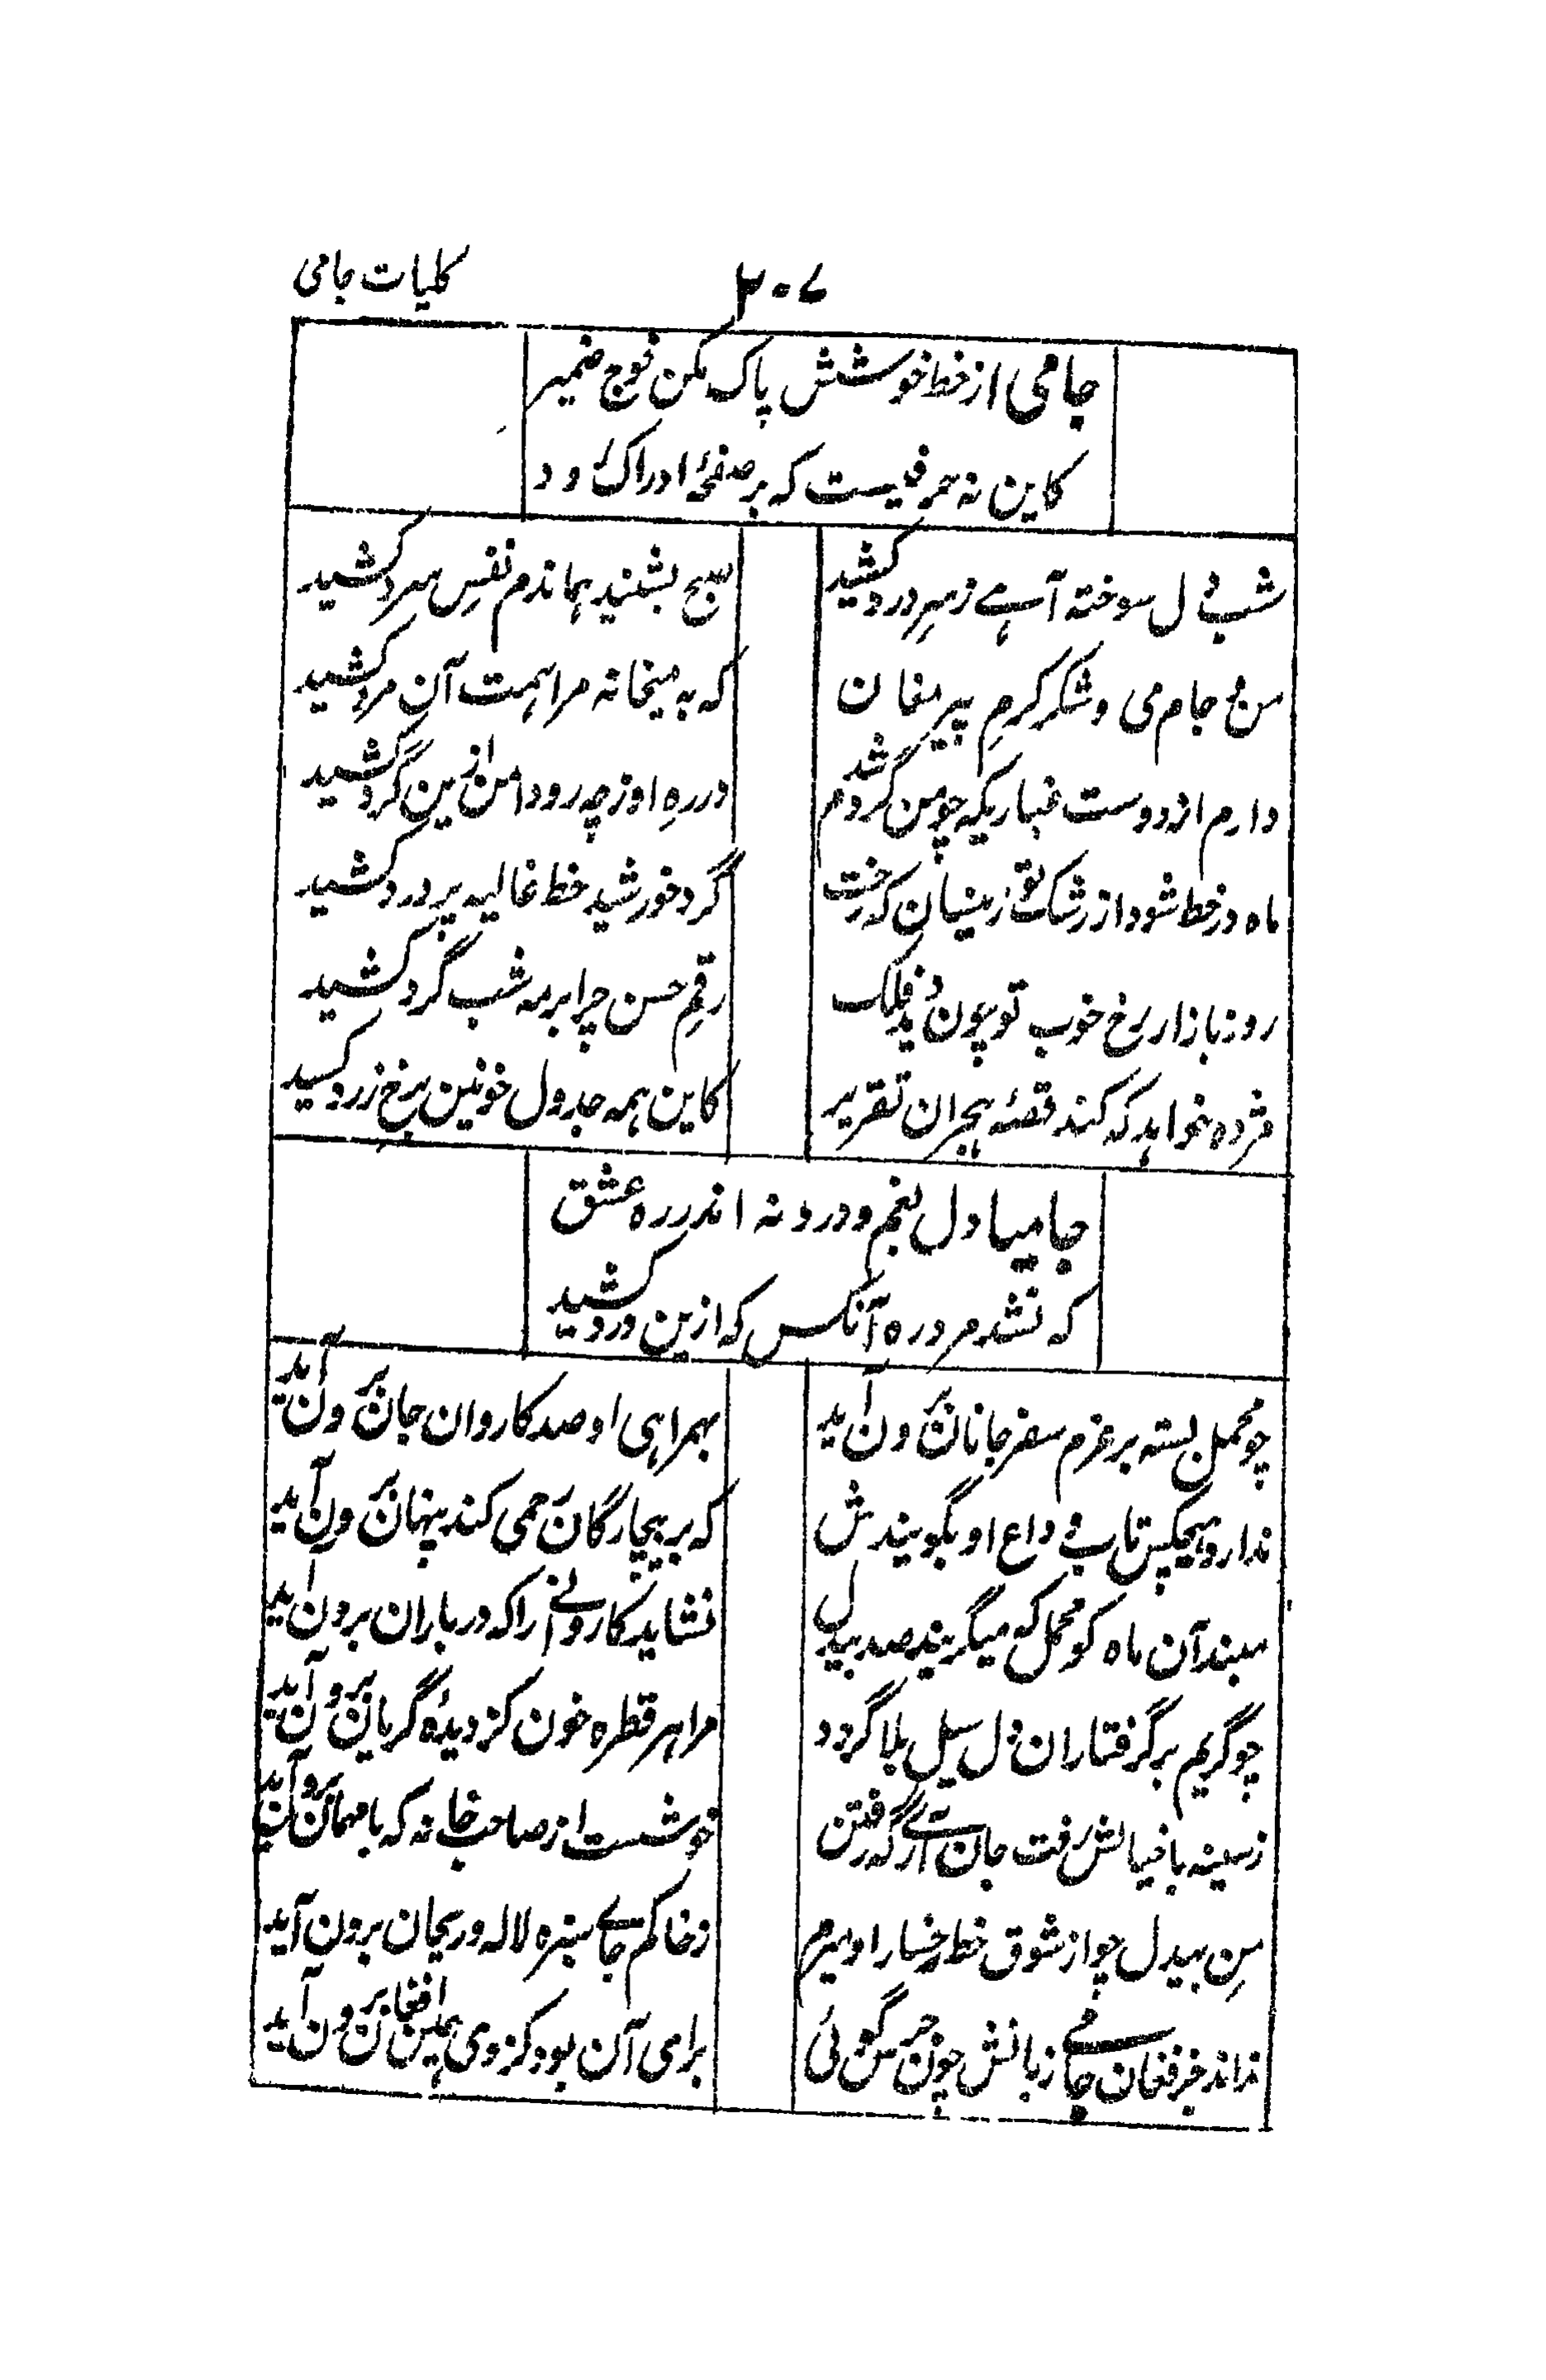 کلیات جامی
۲۰۷
جامی از خط خوشش پاک مکن لوح ضمیر
کاین نه حرفیست که بر صفحهٔ ادراک رود
شب دل سوخته آہے ز سرِ درد کشید
صبح بشنید هماندم نفسِ سرد کشید
من و جام می و شکر کرمِ پیر مغان
که به میخانه مرا همت آن مرد کشید
دارم از دوست غباریکه چو من گرد شدم
در رهِ او ز چه رو دامن ازین گرد کشید
ماه در خط شود از رشک تو زینسان که رخت
گرد خورشید خط غالیه پرورد کشید
روز بازار رخ خوب تو چون دید فلک
رقمِ حسن چرا بر مه شب گرد کشید
مژه خواهد که کند قصهٔ هجران تقریر
کاین همه جدول خونین برخ زرد کشید
جامیا دل بغم و درد نه اندر ره عشق
که نشد مرد ره آنکس که ازین درد کشید
چو محمل بسته بر عزم سفر جانان برون آید
بهمراهی او صد کاروان جان برون آید
ندارد هیچکس تاب وداع او بگویندش
که بر بیچارگان رحمی کند پنهان برون آید
مبند آن ماه کو محمل که میگریند صد بیدل
نشاید کاروانے را که در باران برون آید
چو گریم بر گرفتاران دل سیل بلا گردد
مرا هر قطره خون کز دیدهٔ گریان برون آید
ز سینه با خیالش رفت جان آرے گه رفتن
خوشست از صاحب خانه که با مهمان برون آید
منِ بیدل چو از شوق خط رخسار او میرم
ز خاکم جاے سبزه لاله و ریحان برون آید
نداند جز فغان جامے زبانش چون جرس گوئی
برای آن بود کز وی همین افغان برون آید